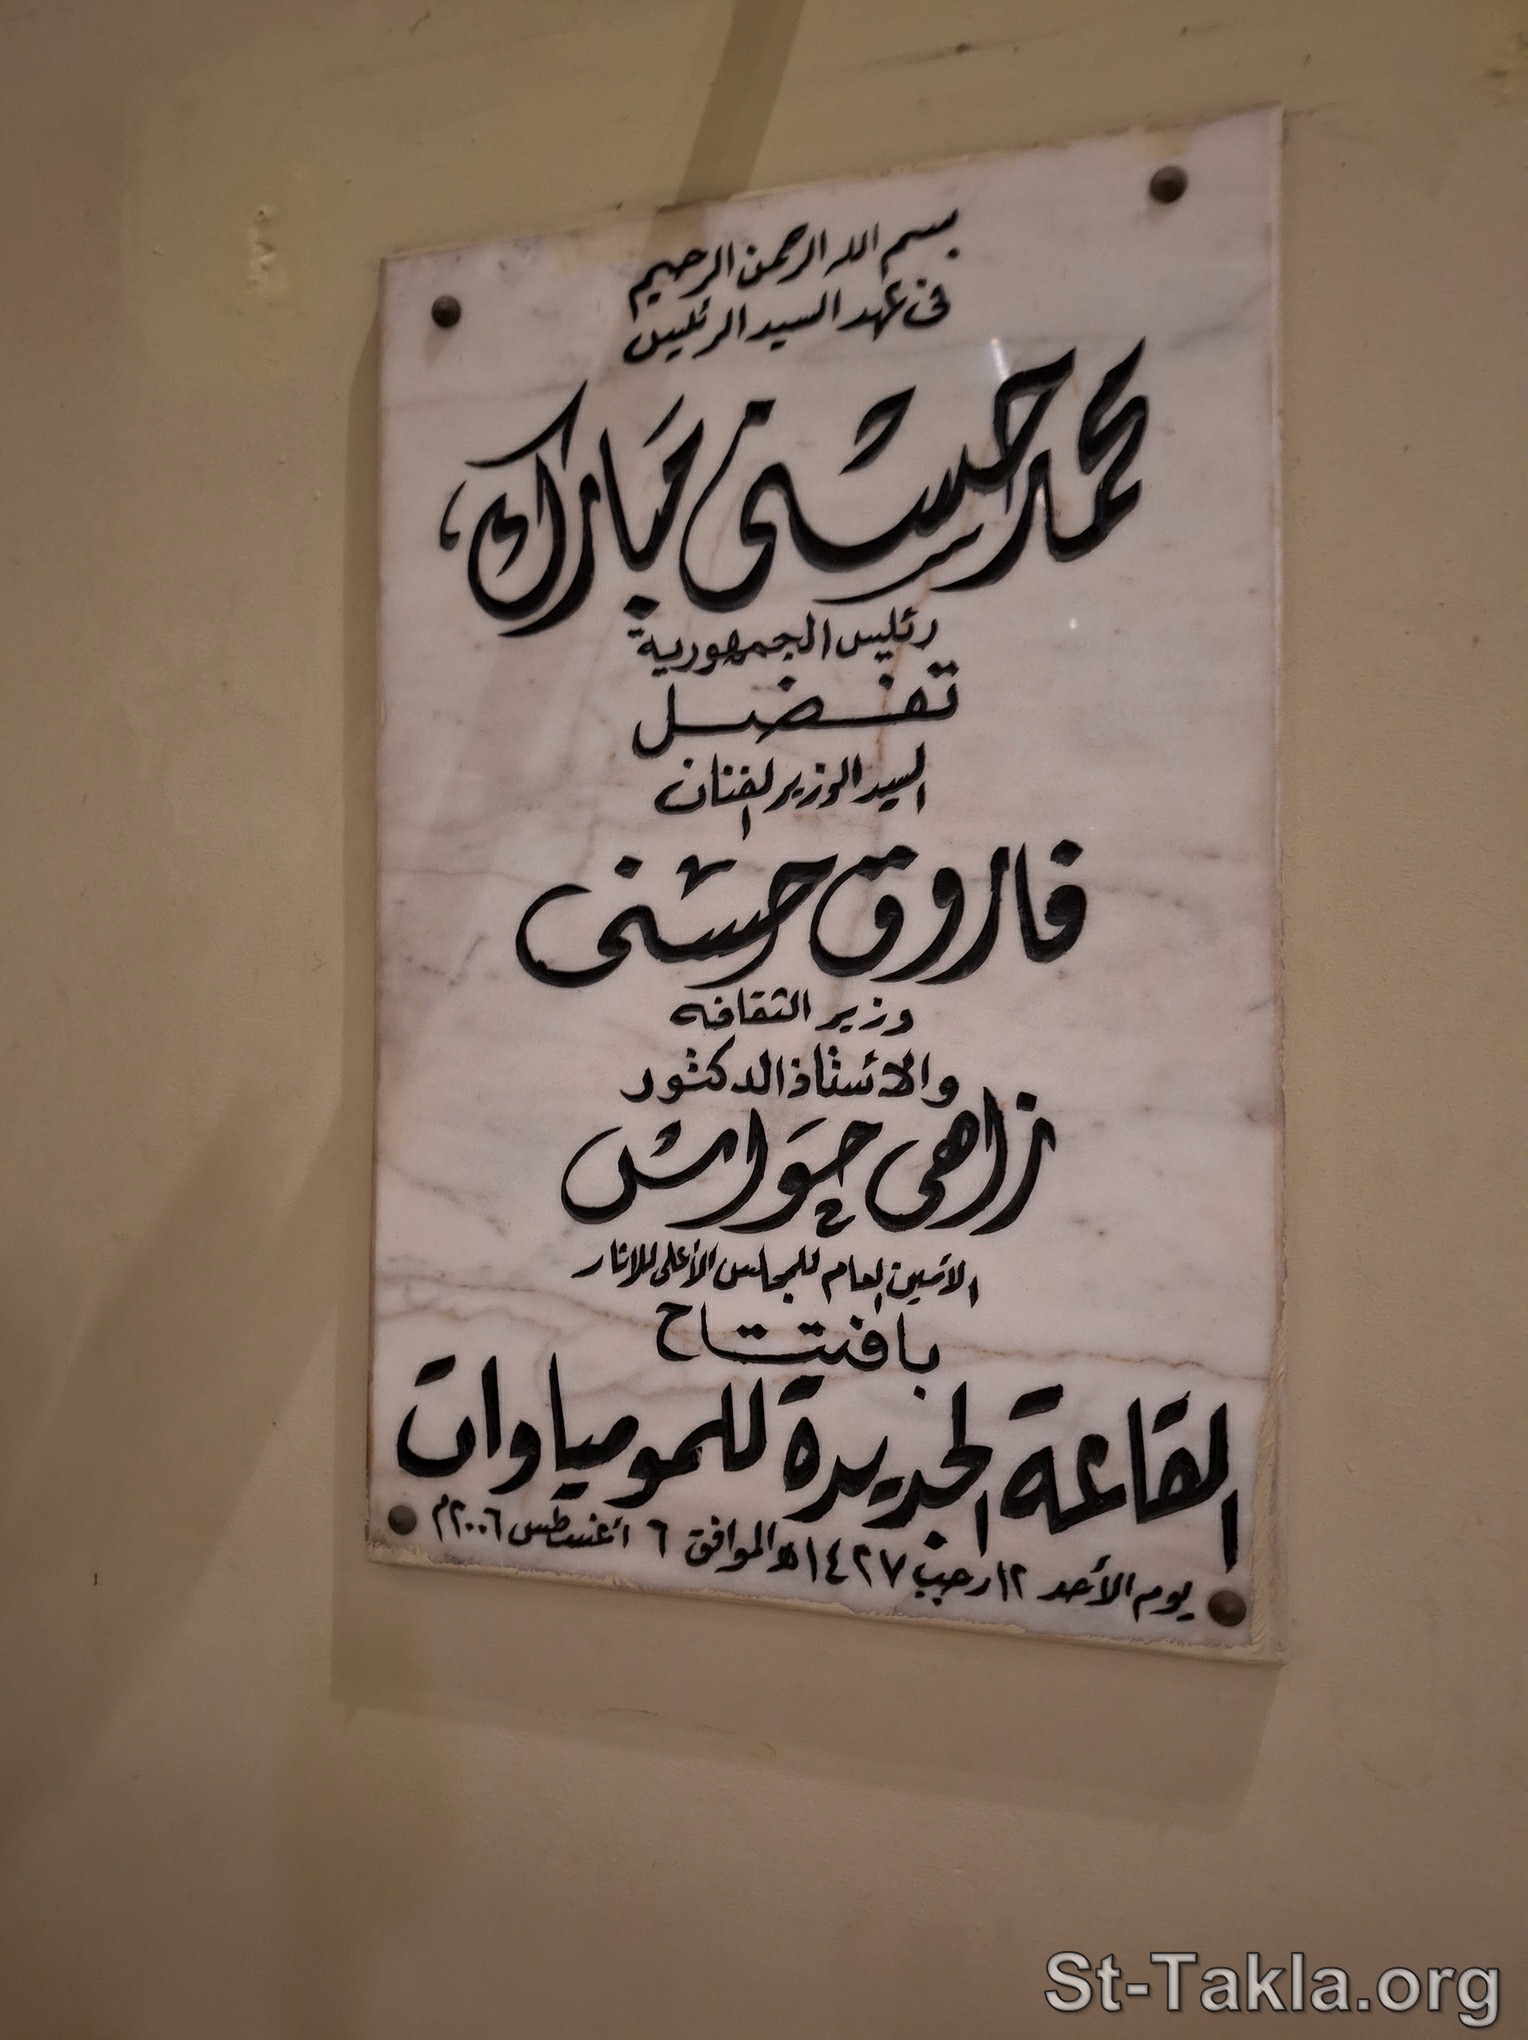 بسم الله الرحمن الرحيم
فى عهد السيد الرئيس
محمد حسنى مبارك
رئيس الجمهورية
تفضل
السيد الوزير الفنان
فاروق حسنى
وزير الثقافه
والأستاذ الدكتور
زاهى حواس
الأمين العام للمجلس الأعلى للاثار
بافتتاح
القاعة الجديدة للمومياوات
يوم الأحد ١٢ رجب ١٤٢٧هـ الموافق ٦ أغسطس ٢٠٠٦م
St-Takla.org